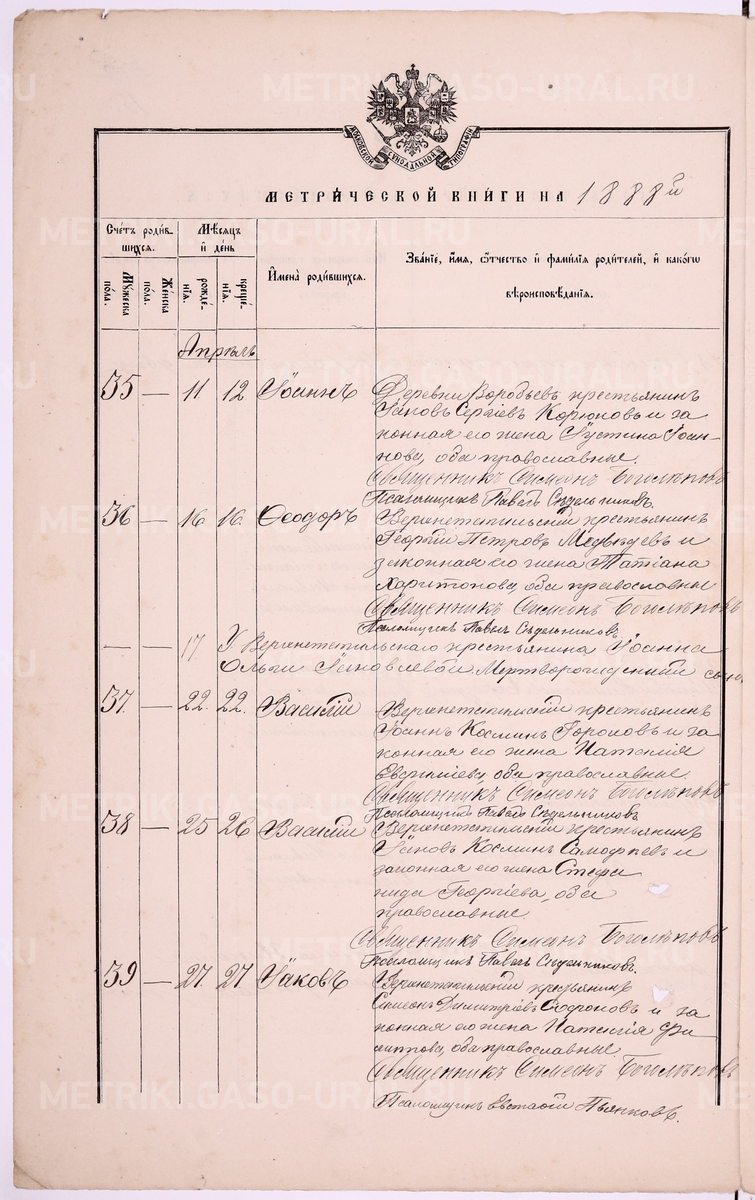 МОСКОВСКОЙ СѴНОДАЛЬНОЙ ТИПОГРАФІИ
МЕТРИ́ЧЕСКОЙ КНИ́ГИ НА 1888 г.
Сче́тъ роди́вшихся.
Мѣ́сяцъ и́ де́нь
И́мена̀ роди́вшихся.
Зва́ніе, и́мя, ѻ҆́тчество и҆ фами́лїѧ роди́телей, и҆ како́гѡ вѣроисповѣ́данїѧ.
Мꙋ́жеска по́ла.
Же́нска по́ла.
рожде́нїѧ.
креще́нїѧ.
Апрѣль
35 — 11 12 Іоаннъ Деревни Воробьевъ крестьянинъ
Іаковъ Сергіевъ Корюковъ и за
конная его жена Іустина Іоан-
нова, оба православные.
Священникъ Симеонъ Боголѣповъ
Псаломщикъ Павелъ Сѣдельниковъ.
36 — 16 16 Ѳеодоръ Верхнетагильскій крестьянинъ
Георгій Петровъ Медвѣдевъ и
законная его жена Татіана
Харитонова, оба православные
Священникъ Симеонъ Боголѣповъ
Псаломщикъ Павелъ Сѣдельниковъ
— — 17 У Верхнетагильскаго крестьянина Іоанна
Ольги Іаковлевой Мертворожденный сынъ
37 — 22 22 Василій Верхнетагильскій крестьянинъ
Іоаннъ Косминъ и за
конная его жена Наталія
Евгеніева, оба православные
Священникъ Симеонъ Боголѣповъ
Псаломщикъ Павелъ Сѣдельниковъ
38 — 25 26 Василій Верхнетагильскій крестьянинъ
Іаковъ Косминъ и
законная его жена Стефа
нида Георгіева, оба
православные
Священникъ Симеонъ Боголѣповъ
Псаломщикъ Павелъ Сѣдельниковъ.
39 — 27 27 Іаковъ Верхнетагильскій крестьянинъ
Симеонъ Димитріевъ Софроновъ и за
конная его жена Наталія Ди
митріова, оба православные
Священникъ Симеонъ Боголѣповъ
Псаломщикъ Евстафій Пьянковъ.
METRIKI.GASO-URAL.RU